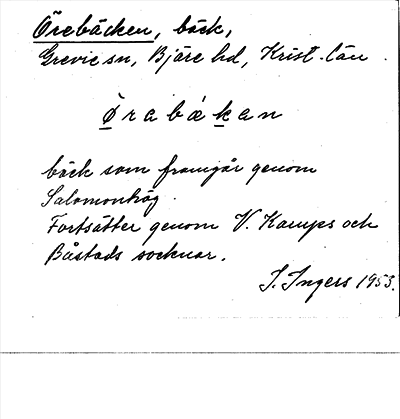 Örebäcken, bäck,
Grevie sn, Bjäre hd, Krist. län.
Ørabækan
bäck som framgår genom
Salomonhög.
Fortsätter genom V. Karups och
Båstads socknar.
I. Ingers 1953.